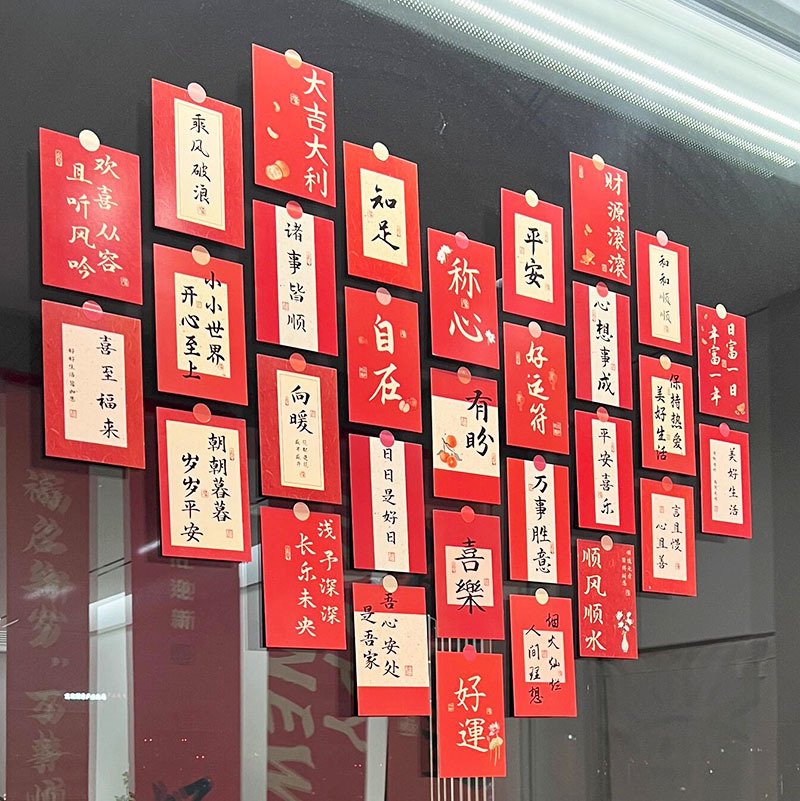 欢喜从容
且听风吟
喜至福来
好好生活皆如愿
乘风破浪
小小世界
开心至上
朝朝暮暮
岁岁平安
大吉大利
诸事皆顺
向暖
浅予深深
长乐未央
知足
自在
日日是好日
吾心安处
是吾家
称心
有盼
喜樂
好運
平安
好运符
万事胜意
烟火灿烂
人间理想
财源滚滚
心想事成
平安喜乐
顺风顺水
和和顺顺
保持热爱
美好生活
言且慢
心且善
日富一日
年富一年
美好生活
迎新